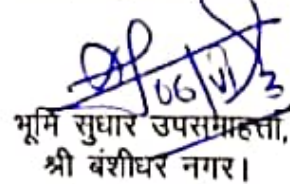 06/VI/3
भूमि सुधार उपसमाहर्त्ता,
श्री बंशीधर नगर।